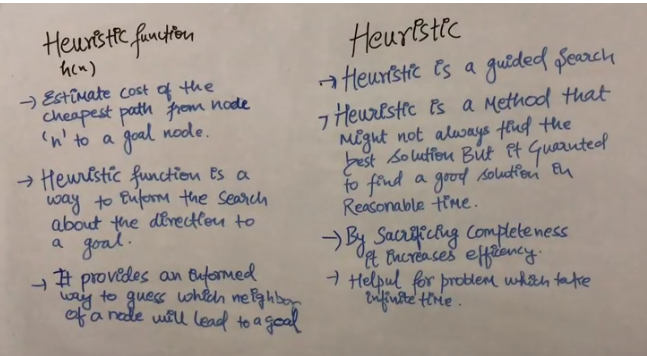 Heuristic function
h(n)
→ Estimate cost of the
cheapest path from node
'n' to a goal node.
→ Heuristic function is a
way to inform the search
about the direction to
a goal.
→ It provides an informed
way to guess which neighbor
of a node will lead to a goal
Heuristic
→ Heuristic is a guided search
→ Heuristic is a Method that
Might not always find the
best solution But it Guaranted
to find a good solution in
Reasonable time.
→ By Sacrificing Completeness
it increases efficency.
→ Helpul for problem which take
infinite time.